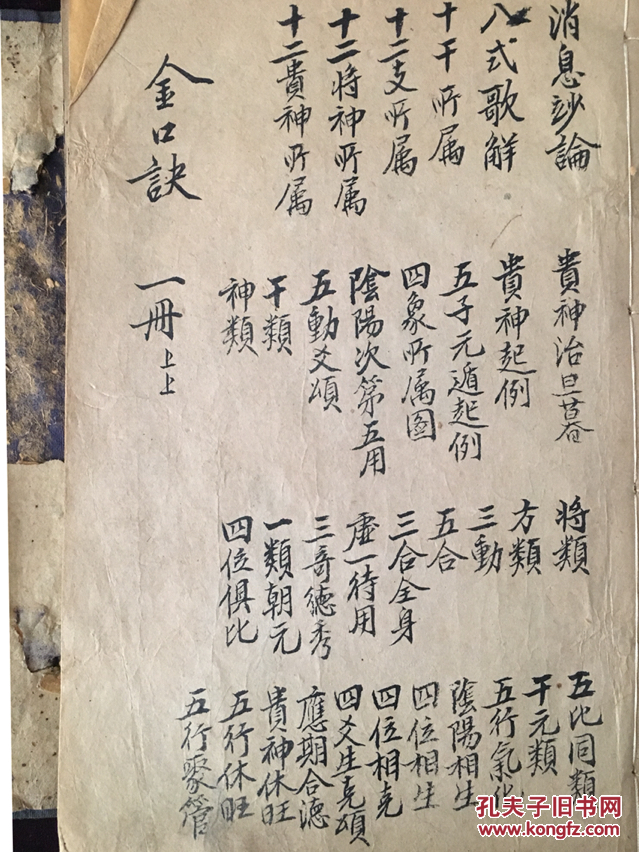 消息妙論
八式歌解
十干所属
十二支所属
十二将神所属
十二貴神所属
貴神治旦暮
貴神起例
五子元遁起例
四象所属图
陰陽次第五用
五動爻頌
干類
神類
将類
方類
三動
五合
三合全身
虚一待用
三奇德秀
一類朝元
四位俱比
五比同類
干元類
五行氣化
陰陽相生
四位相生
四位相克
四爻生克頌
應期合德
貴神休旺
五行休旺
五行聚管
金口訣
一册
上上
孔夫子旧书网
www.kongfz.com